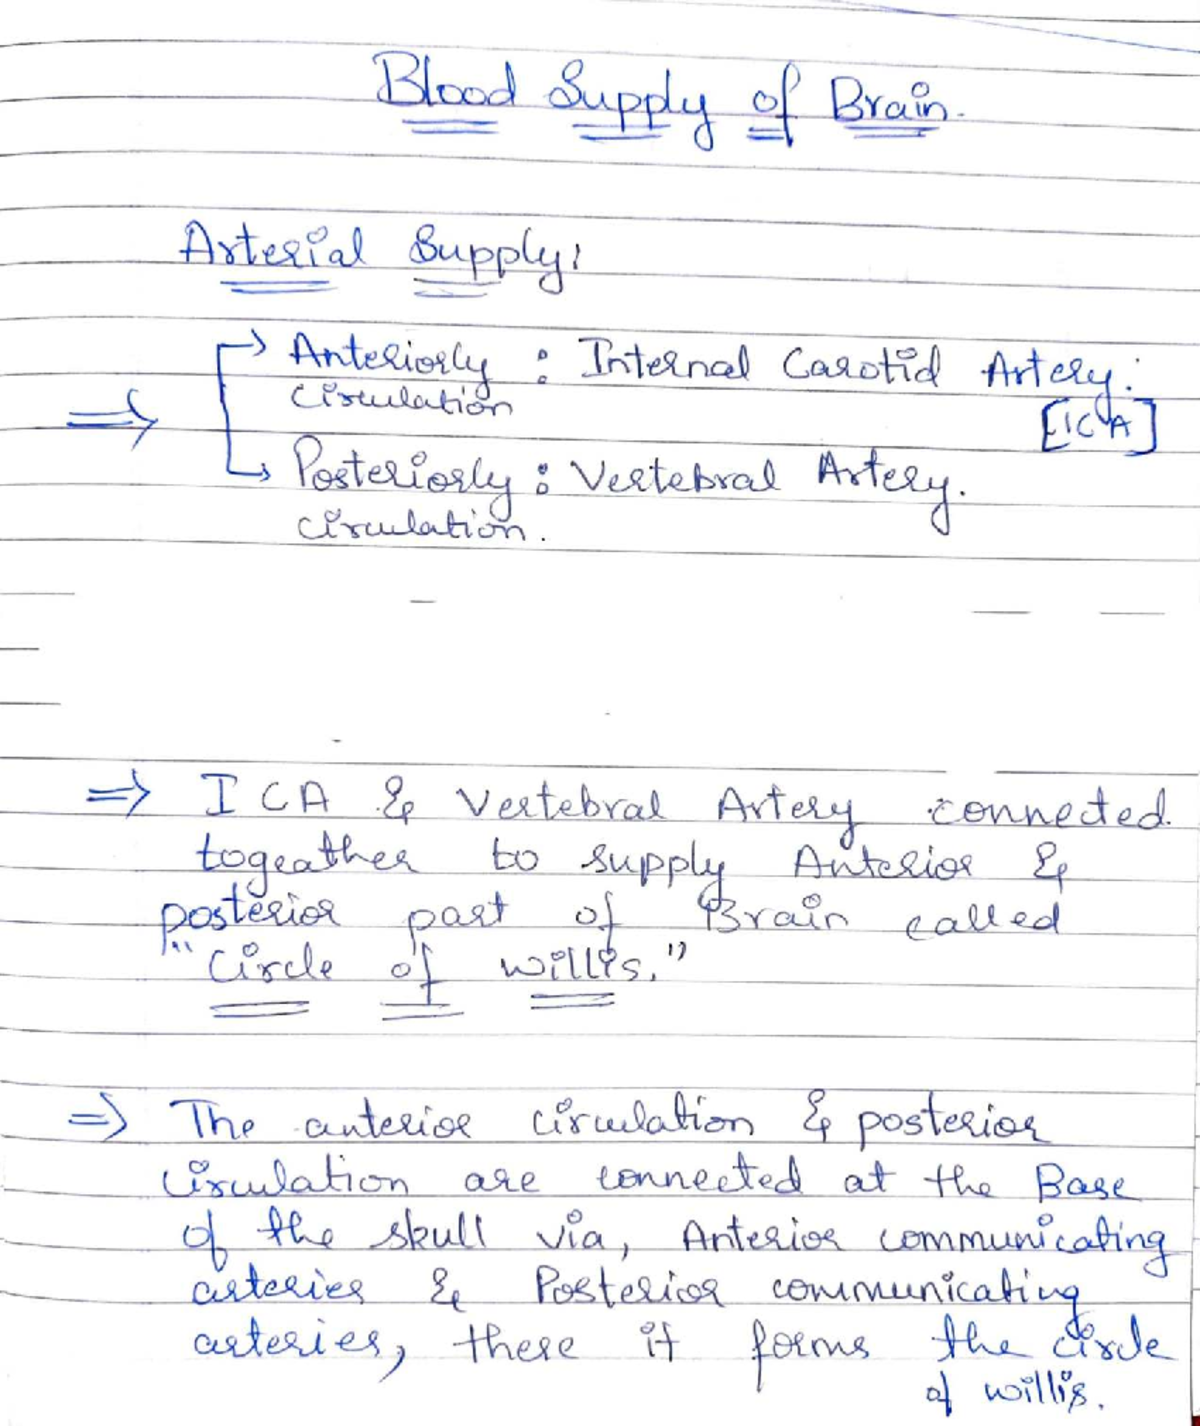 Blood Supply of Brain.
Arterial Supply:
→ Anteriorly : Internal Carotid Artery.
circulation [ICA]
⇒
↳ Posteriorly : Vertebral Artery.
circulation.
⇒ ICA & Vertebral Artery connected
togeather to supply Anterior &
posterior part of Brain called
"Circle of willis."
⇒ The anterior circulation & posterior
circulation are connected at the Base
of the skull via, Anterior communicating
arteries & Posterior communicating
arteries, there it forms the circle
of willis.